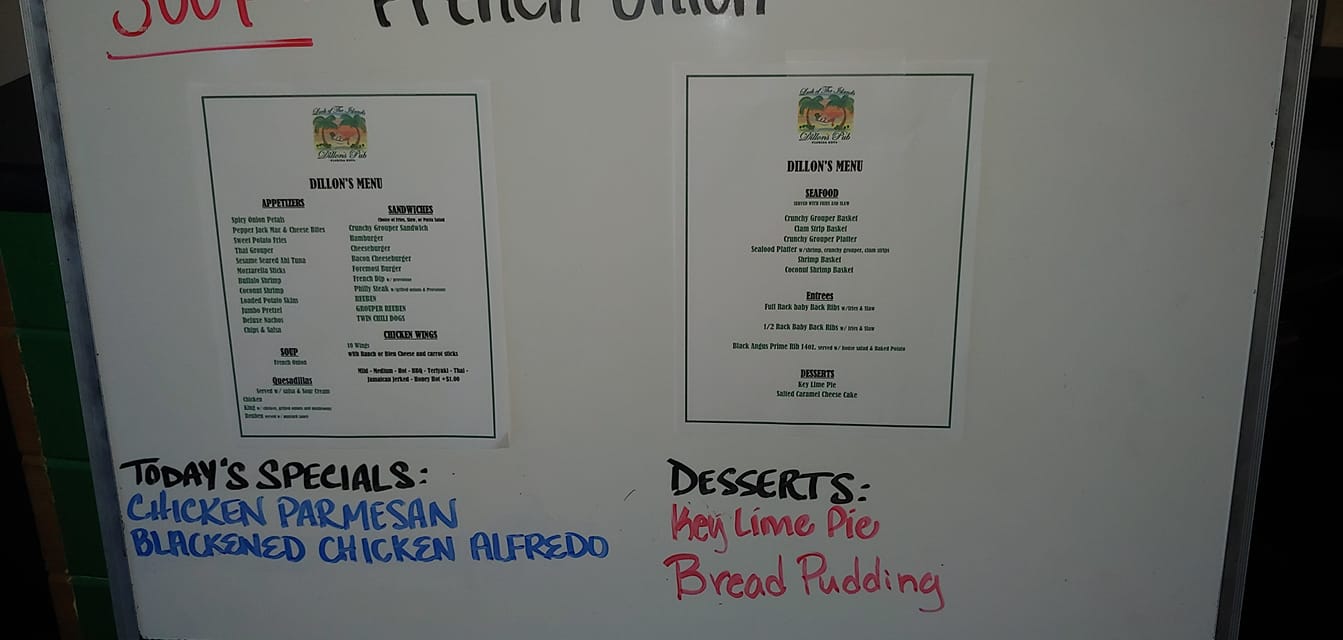 SOUP
French Onion
Luck of The Islands
Dillon's Pub
FLORIDA KEYS
DILLON'S MENU
APPETIZERS
Spicy Onion Petals
Pepper Jack Mac & Cheese Bites
Sweet Potato Fries
Thai Grouper
Sesame Seared Ahi Tuna
Mozzarella Sticks
Buffalo Shrimp
Coconut Shrimp
Loaded Potato Skins
Jumbo Pretzel
Deluxe Nachos
Chips & Salsa
SOUP
French Onion
Quesadillas
Served w/ salsa & Sour Cream
Chicken
King w/ chicken, grilled onions and mushrooms
Reuben served w/ mustard sauce
SANDWICHES
Choice of Fries, Slaw, or Pasta Salad
Crunchy Grouper Sandwich
Hamburger
Cheeseburger
Bacon Cheeseburger
Foremost Burger
French Dip w/ provolone
Philly Steak w/grilled onions & Provolone
REUBEN
GROUPER REUBEN
TWIN CHILI DOGS
CHICKEN WINGS
10 Wings
with Ranch or Bleu Cheese and carrot sticks
Mild - Medium - Hot - BBQ - Teriyaki - Thai -
Jamaican Jerked - Honey Hot +$1.00
Luck of The Islands
Dillon's Pub
FLORIDA KEYS
DILLON'S MENU
SEAFOOD
SERVED WITH FRIES AND SLAW
Crunchy Grouper Basket
Clam Strip Basket
Crunchy Grouper Platter
Seafood Platter w/shrimp, crunchy grouper, clam strips
Shrimp Basket
Coconut Shrimp Basket
Entrees
Full Rack baby Back Ribs w/fries & Slaw
1/2 Rack Baby Back Ribs w/ fries & Slaw
Black Angus Prime Rib 14oz. served w/ house salad & Baked Potato
DESSERTS
Key Lime Pie
Salted Caramel Cheese Cake
TODAY'S SPECIALS:
CHICKEN PARMESAN
BLACKENED CHICKEN ALFREDO
DESSERTS:
Key Lime Pie
Bread Pudding